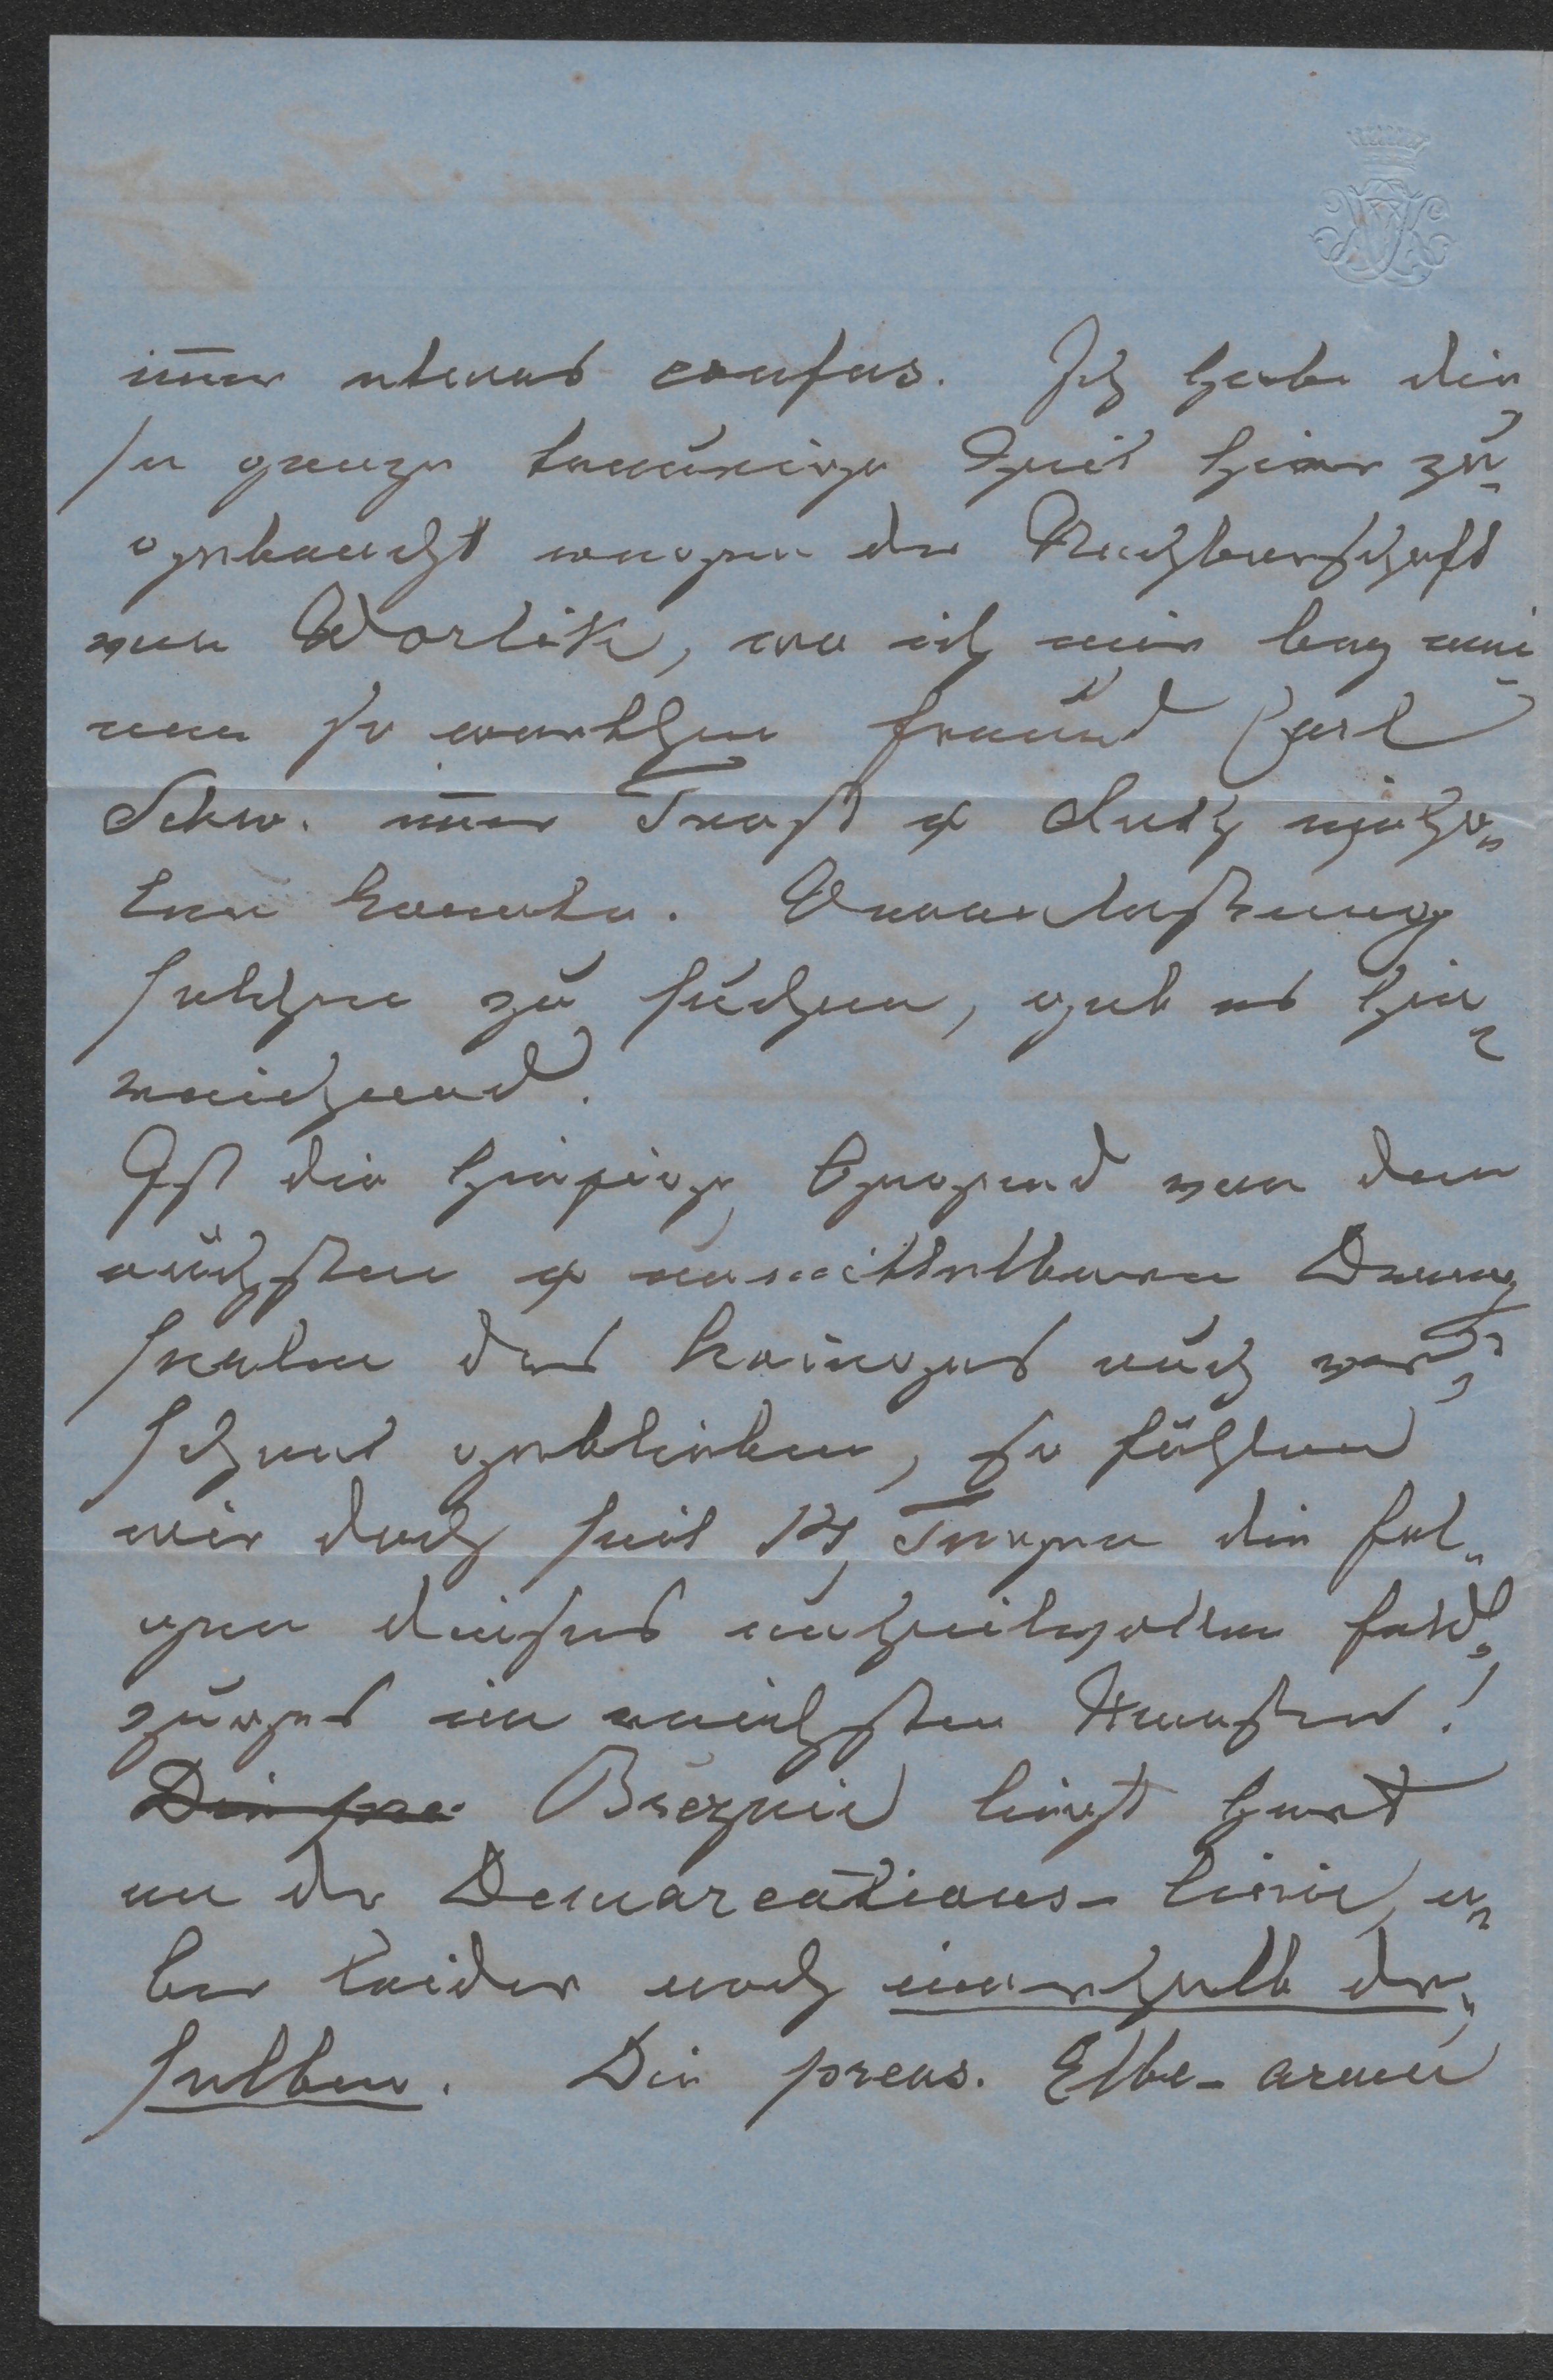 im̅er etwas confus. Ich habe die-
se ganze traurige Zeit hier zu-
gebracht wegen der Nachbarschaft
von Worlik, wo ich mir bey mei-
nem so werthen Freund Carl
Schw. im̅er Trost & Rath ho-
len konnte. Veranlassung
solchen zu suchen, gab es hin-
reichend.
Ist die hiesige Gegend von den
nächsten & unmittelbaren Drang-
salen des Krieges auch ver-
schont geblieben, so fühlen
wir doch seit 14 Tagen die Fol-
gen dieses unheilvollen Feld-
zuges im reichsten Maaße!
Die pre Březnic liegt hart
an der Demarcations-Linie, a-
ber leider noch innerhalb der-
selben. Die preus. Elbe-armee